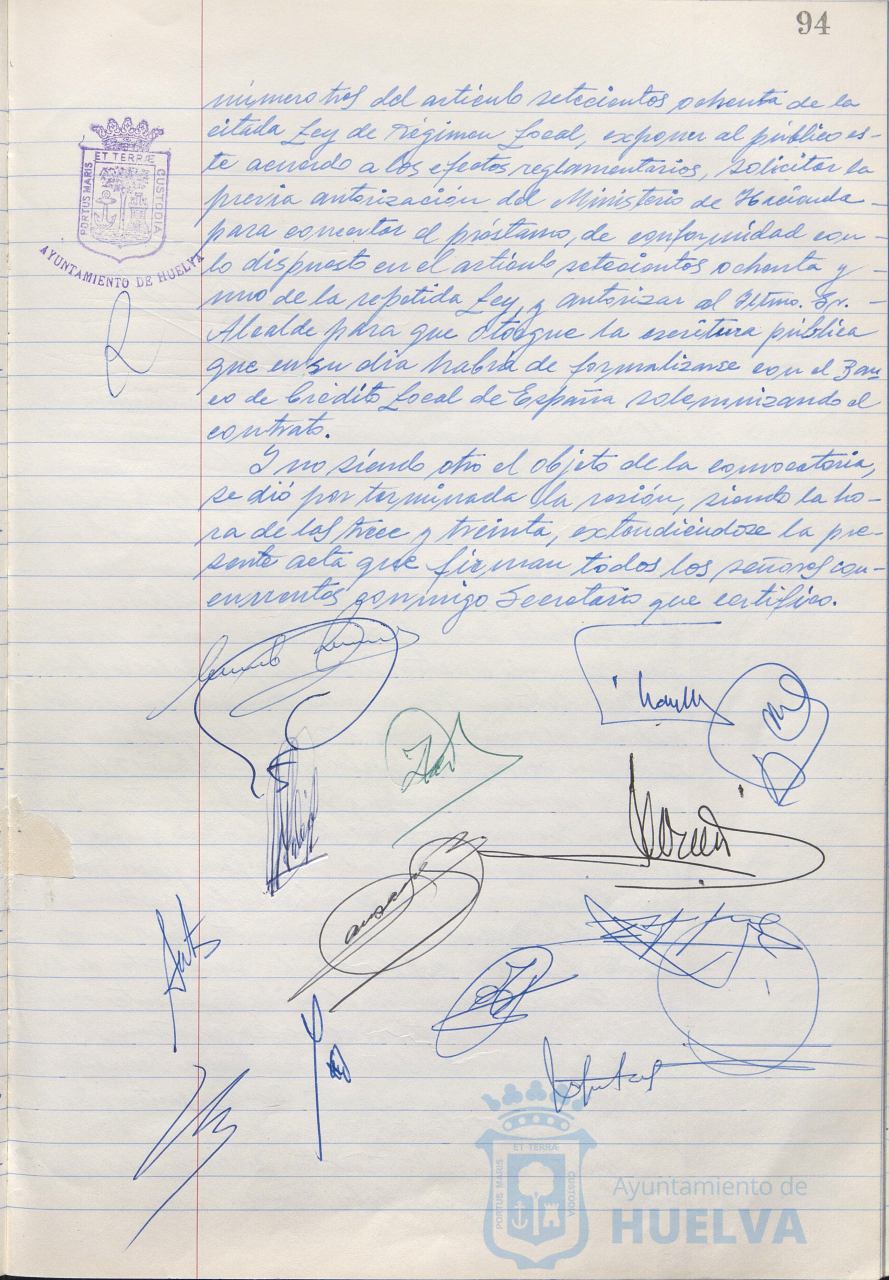 94
número tres del artículo setecientos ochenta de la
citada Ley de Régimen Local, exponer al público es-
te acuerdo a los efectos reglamentarios, solicitar la
previa autorización del Ministerio de Hacienda -
para concertar el préstamo, de conformidad con -
lo dispuesto en el artículo setecientos ochenta y -
uno de la repetida Ley, y autorizar al Iltmo. Sr. -
Alcalde para que otorgue la escritura pública
que en su día habrá de formalizarse con el Ban-
co de Crédito Local de España solemnizando el
contrato.
Y no siendo otro el objeto de la convocatoria,
se dió por terminada la sesión, siendo la ho-
ra de las trece y treinta, extendiéndose la pre-
sente acta que firman todos los señores con-
currentes conmigo Secretario que certifico.
PORTUS MARIS ET TERRÆ CUSTODIA
AYUNTAMIENTO DE HUELVA
PORTUS MARIS ET TERRÆ CUSTODIA
Ayuntamiento de
HUELVA